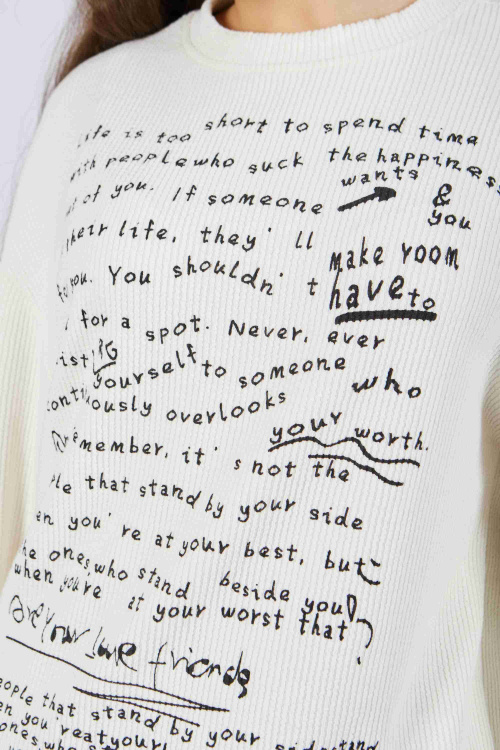 life is too short to spend time
with people who suck the happiness
out of you. If someone wants & you
their life, they'll make room
for you. You shouldn't have to
for a spot. Never, ever
yourself to someone who
continuously overlooks your worth.
Remember, it's not the
ple that stand by your side
en you're at your best, but
he ones who stand beside you
when you're at your worst that
are your true friends
eople that stand by your side
en you're at your
ones who